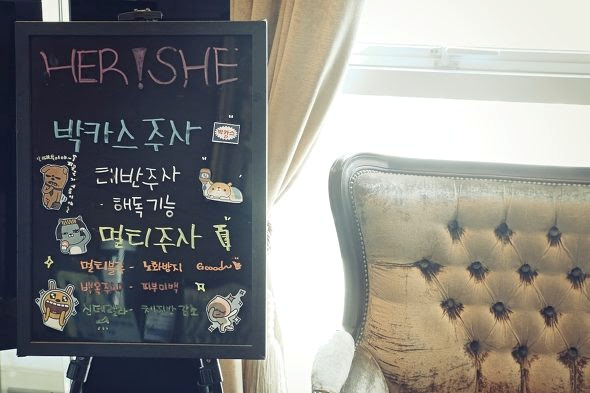 HER!SHE
박카스 주사
박카스
태반주사
· 해독기능
멀티주사
- 노화방지 Good~
백옥주사 - 피부미백
신데렐라 - 체지방 감소